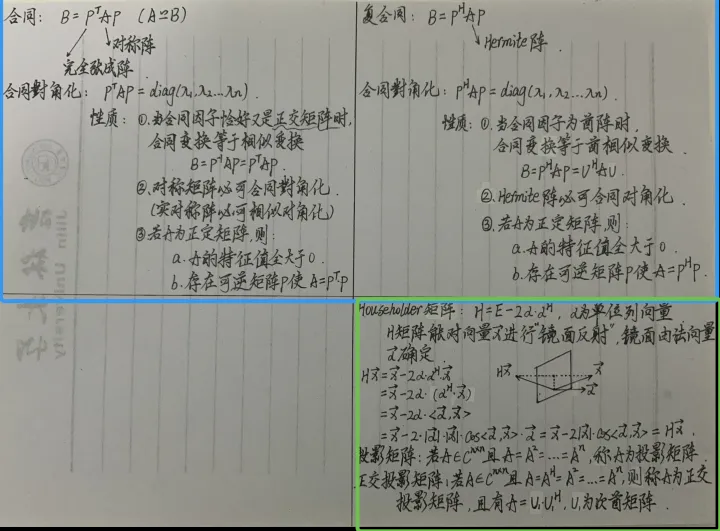 合同: B=PᵀAP (A≃B)
对称阵
完全驮成阵.
合同對角化: PᵀAP=diag(λ₁,λ₂...λn).
性质: ①.当合同因子恰好又是正交矩阵时,
合同变换等于相似变换
B=P⁻¹AP=PᵀAP.
②.对称矩阵必可合同對角化.
(实对称阵必可相似对角化)
③若A为正定矩阵,则:
a.A的特征值全大于0.
b.存在可逆矩阵P使A=PᵀP
复合同: B=PᴴAP
Hermite阵.
合同對角化: PᴴAP=diag(λ₁,λ₂...λn).
性质: ①.当合同因子为酉阵时,
合同变换等于酉相似变换.
B=PᴴAP=UᴴAU.
②.Hermite阵必可合同对角化.
③.若A为正定矩阵,则:
a.A的特征值全大于0.
b.存在可逆矩阵P使A=PᴴP.
Householder矩阵: H=E-2α·αᴴ, α为单位列向量
H矩阵能对向量x⃗进行"镜面反射",镜面由法向量
α⃗确定.
Hx⃗ x⃗ α⃗
Hx⃗=x⃗-2α·αᴴ·x⃗
=x⃗-2α·(αᴴ·x⃗)
=x⃗-2α·<α⃗,x⃗>
=x⃗-2·|α⃗|·|x⃗|·cos<α⃗,x⃗>·α⃗=x⃗-2|x⃗|·cos<α⃗,x⃗>=Hx⃗.
投影矩阵:若A∈Cⁿˣⁿ且A=A²=...=Aⁿ,称A为投影矩阵.
正交投影矩阵:若A∈Cⁿˣⁿ且A=Aᴴ=A²=...=Aⁿ,则称A为正交
投影矩阵,且有A=U₁U₁ᴴ,U₁为次酉矩阵.
吉林大学
Jilin University